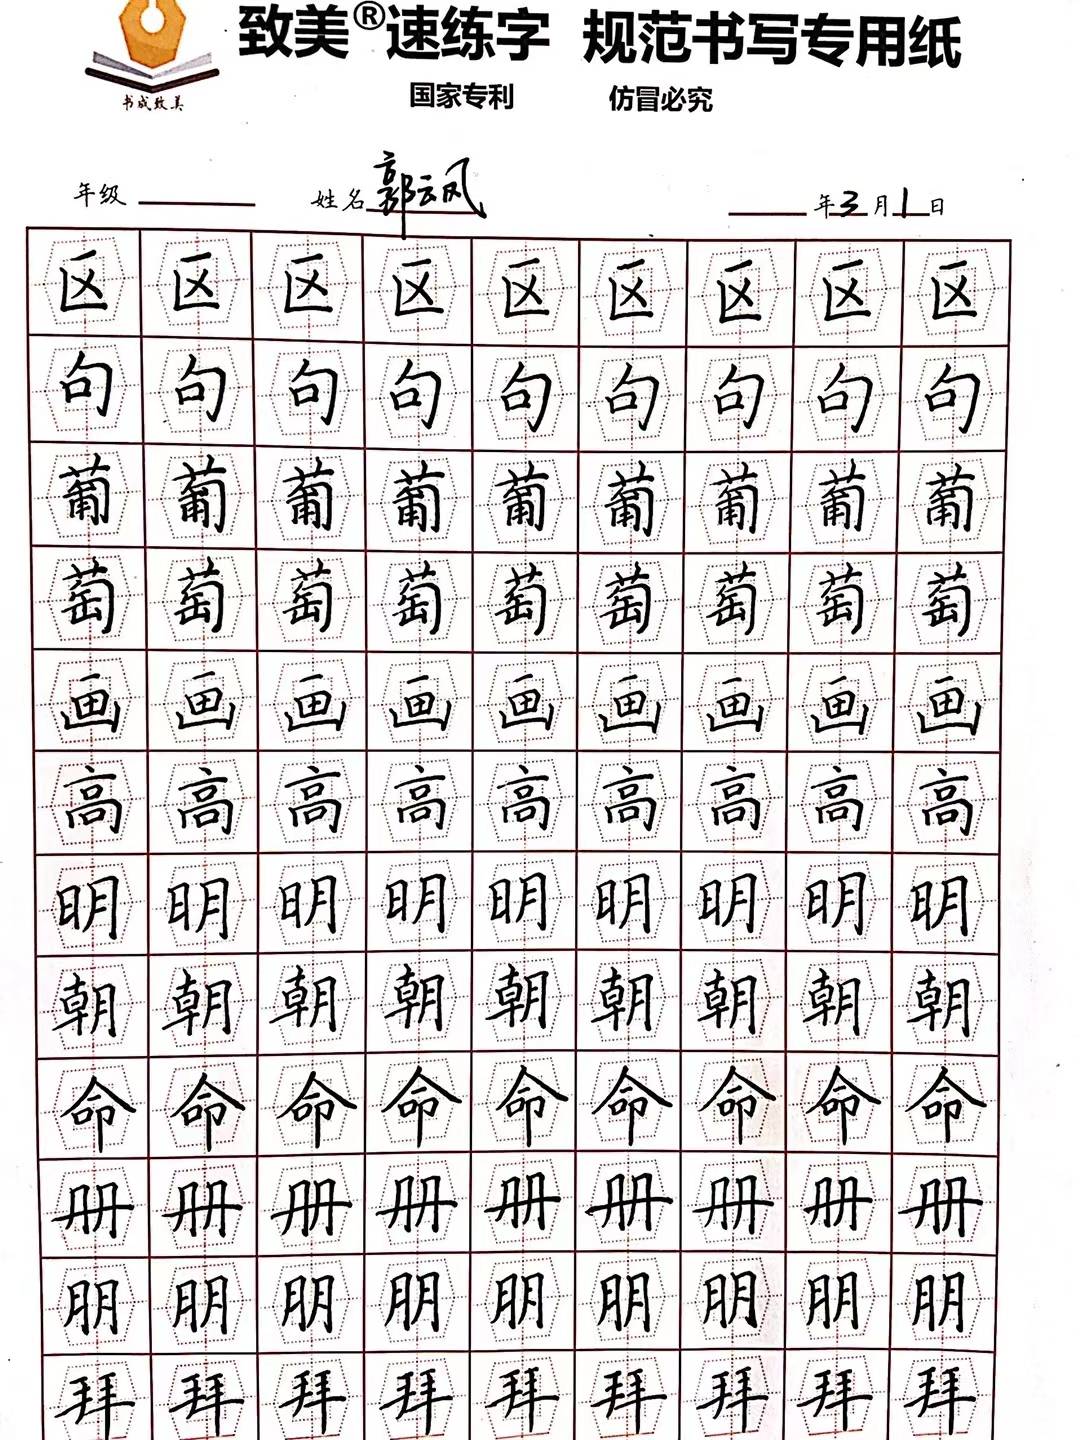 致美®速练字 规范书写专用纸
国家专利 仿冒必究
书成致美
年级 姓名 郭云凤 年3月1日
区 区 区 区 区 区 区 区 区
句 句 句 句 句 句 句 句 句
葡 葡 葡 葡 葡 葡 葡 葡 葡
萄 萄 萄 萄 萄 萄 萄 萄 萄
画 画 画 画 画 画 画 画 画
高 高 高 高 高 高 高 高 高
明 明 明 明 明 明 明 明 明
朝 朝 朝 朝 朝 朝 朝 朝 朝
命 命 命 命 命 命 命 命 命
册 册 册 册 册 册 册 册 册
朋 朋 朋 朋 朋 朋 朋 朋 朋
拜 拜 拜 拜 拜 拜 拜 拜 拜